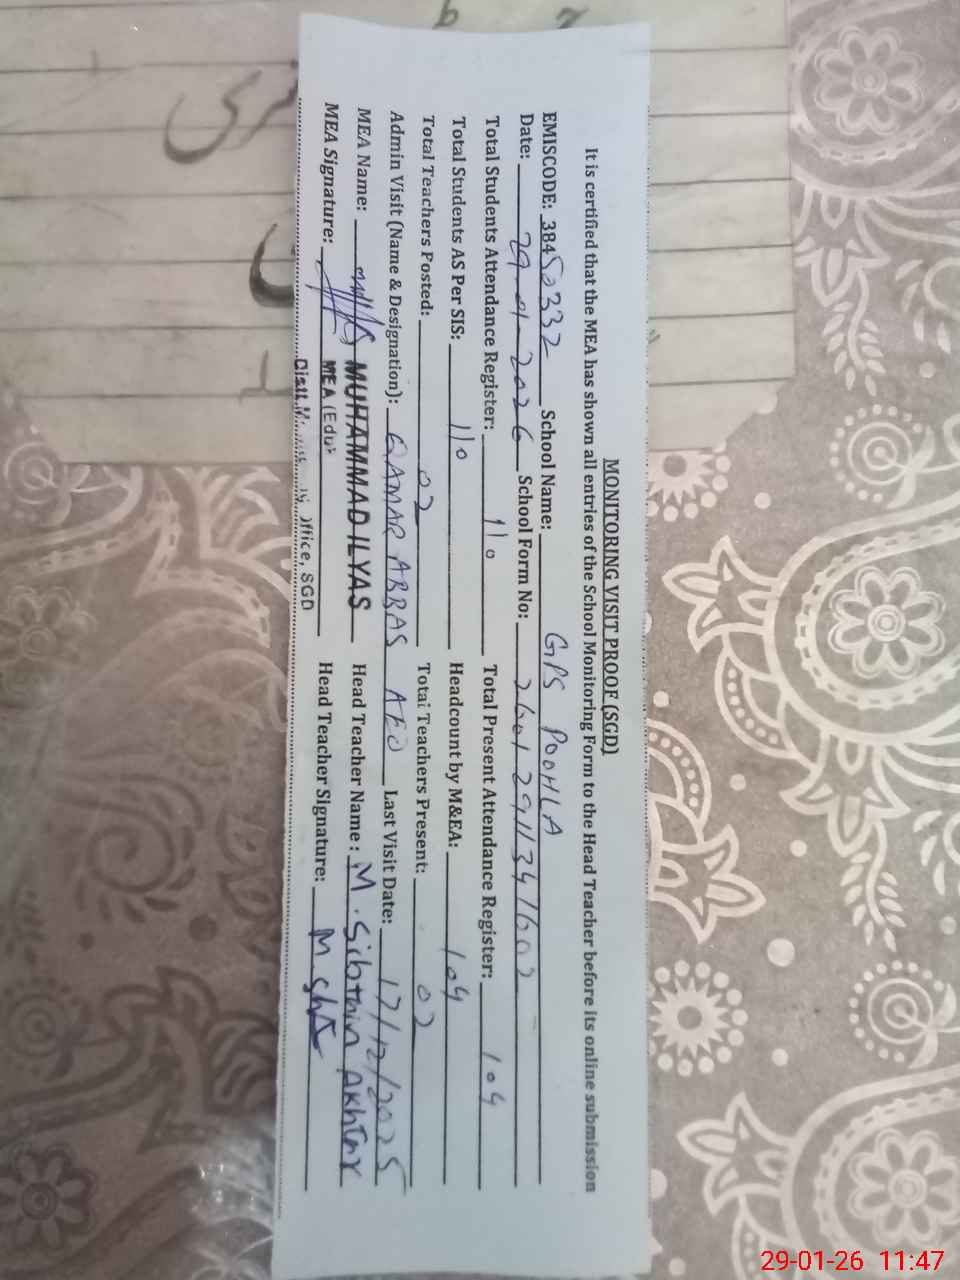 MONITORING VISIT PROOF (SGD)
It is certified that the MEA has shown all entries of the School Monitoring Form to the Head Teacher before its online submission
EMISCODE: 38450332 School Name: GPS POOHLA
Date: 29-01-2026 School Form No: 26012911341602
Total Students Attendance Register: 110 Total Present Attendance Register: 104
Total Students AS Per SIS: 110 Headcount by M&EA: 104
Total Teachers Posted: 02 Total Teachers Present: 02
Admin Visit (Name & Designation): QAMAR ABBAS AEO Last Visit Date: 17/12/2025
MEA Name: MUHAMMAD ILYAS Head Teacher Name: M. Sibtain Akhtar
MEA Signature: MEA (Edu) Head Teacher Signature:
Distt. Office, SGD
29-01-26 11:47